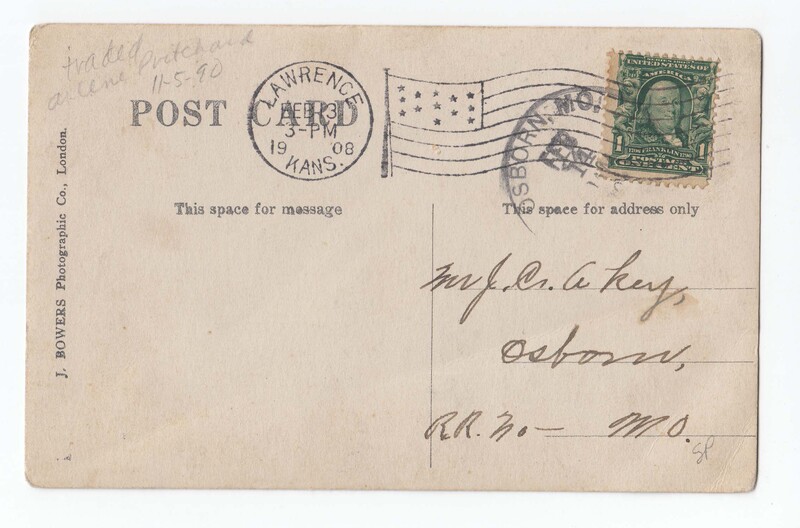 traded
arlene pritchard
11-5-90
POST CARD
LAWRENCE
FEB 13
3-PM
19 08
KANS.
OSBORN, MO.
SERIES 1902
UNITED STATES OF
AMERICA
1 1706 FRANKLIN 1790 1
POSTAGE
ONE CENT
This space for message
This space for address only
J. BOWERS Photographic Co., London.
Mr J. Cr. Akey,
Osborn,
R.R. No — MO.
SP